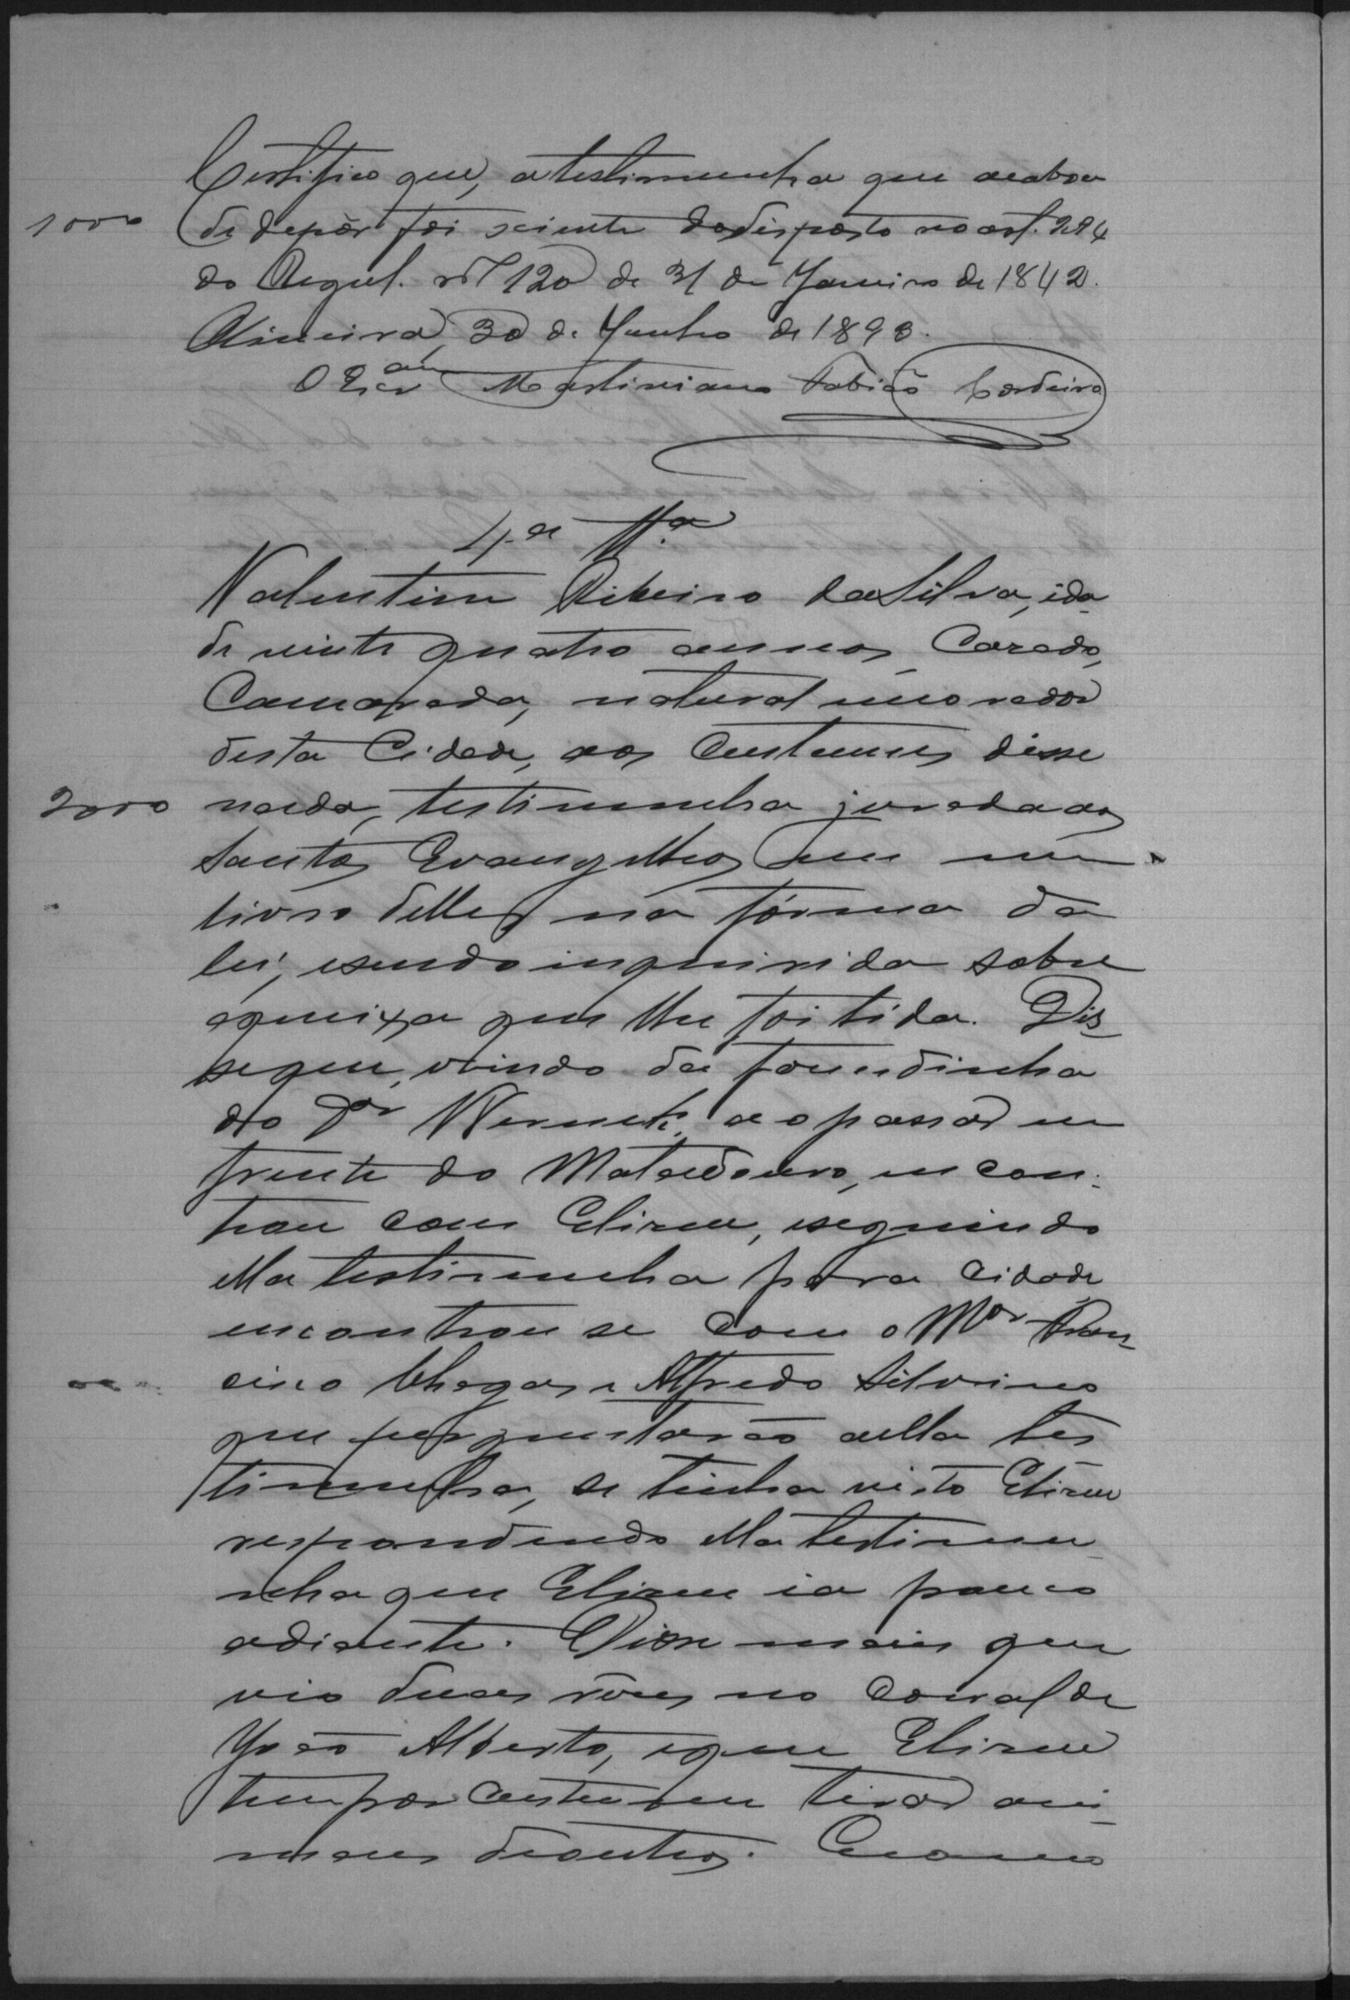 Certifico que, a testimunha que acabou
1000 de depôr foi sciente do disposto no art. 294
do Regul. nº 120 de 31 de Janeiro de 1842.
Limeira, 30 de Junho de 1893.
O Escam Martiniano Fabião Cordeiro
4.a Tt.a
Valentim Ribeiro da Silva, ida
de vinte quatro annos, Cazado,
Camarada, natural e morador
desta Cidade, aos Custumes disse
2000 nada, testimunha jurada aos
Santos Evangelhos em um
livro delles na fórma da
lei, e sendo inquirida sobre
a queixa que lhe foi lida. Dis-
se que, vindo da fazendinha
do Dor Werneck, ao passar em
frente do Matadouro, incon-
trou com Elizeu, e seguindo
ella testimunha para cidade
encontrou se com o Mor Fran-
cisco Chagas e Alfredo Silverino
que perguntarão a ella tes
timunha, se tinha visto Elizeu
respondendo ella testimu-
nha que Elizeu ia pouco
adiante. Disse mais que
vio duas rêzes no Corral de
João Alberto, e que Elizeu
tem por custume tirar ani-
maes de outros. Como